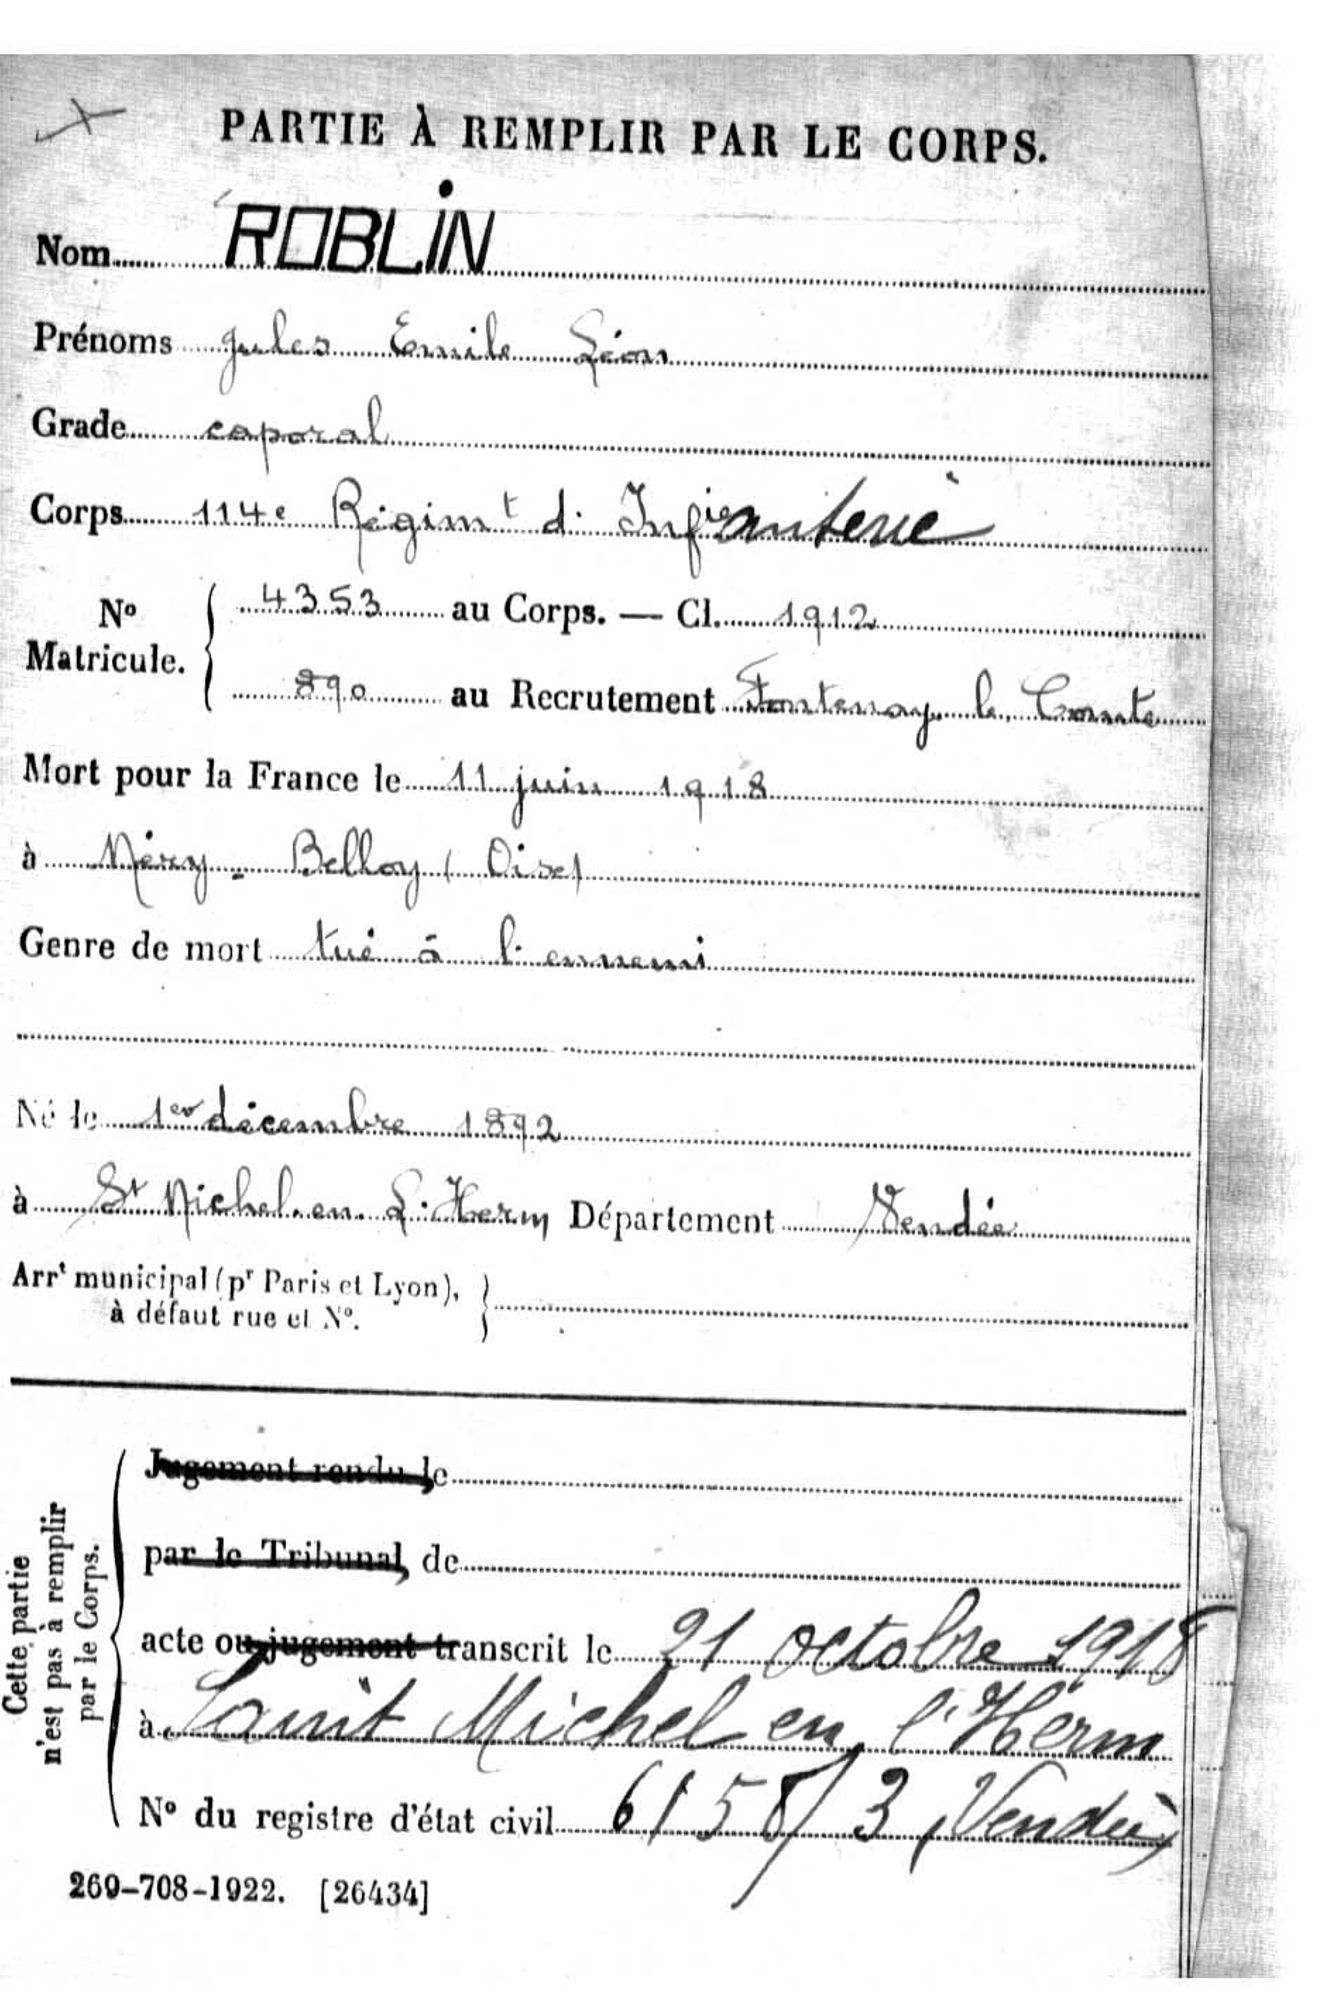 PARTIE À REMPLIR PAR LE CORPS.
Nom ROBLIN
Prénoms Jules Emile Léon
Grade caporal
Corps 114e Régimt d'Infanterie
No Matricule. { 4353 au Corps. — Cl. 1912
890 au Recrutement Fontenay le Comte
Mort pour la France le 11 juin 1918
à Méry - Belloy (Oise)
Genre de mort tué à l'ennemi
Né le 1er décembre 1892
à St Michel en L'Herm Département Vendée
Arrt municipal (pr Paris et Lyon),
à défaut rue et No.
Cette partie
n'est pas à remplir
par le Corps.
Jugement rendu le
par le Tribunal, de
acte ou jugement transcrit le 21 octobre 1918
à Saint Michel en l'Herm
No du registre d'état civil 6158/3 (Vendée)
269-708-1922. [26434]